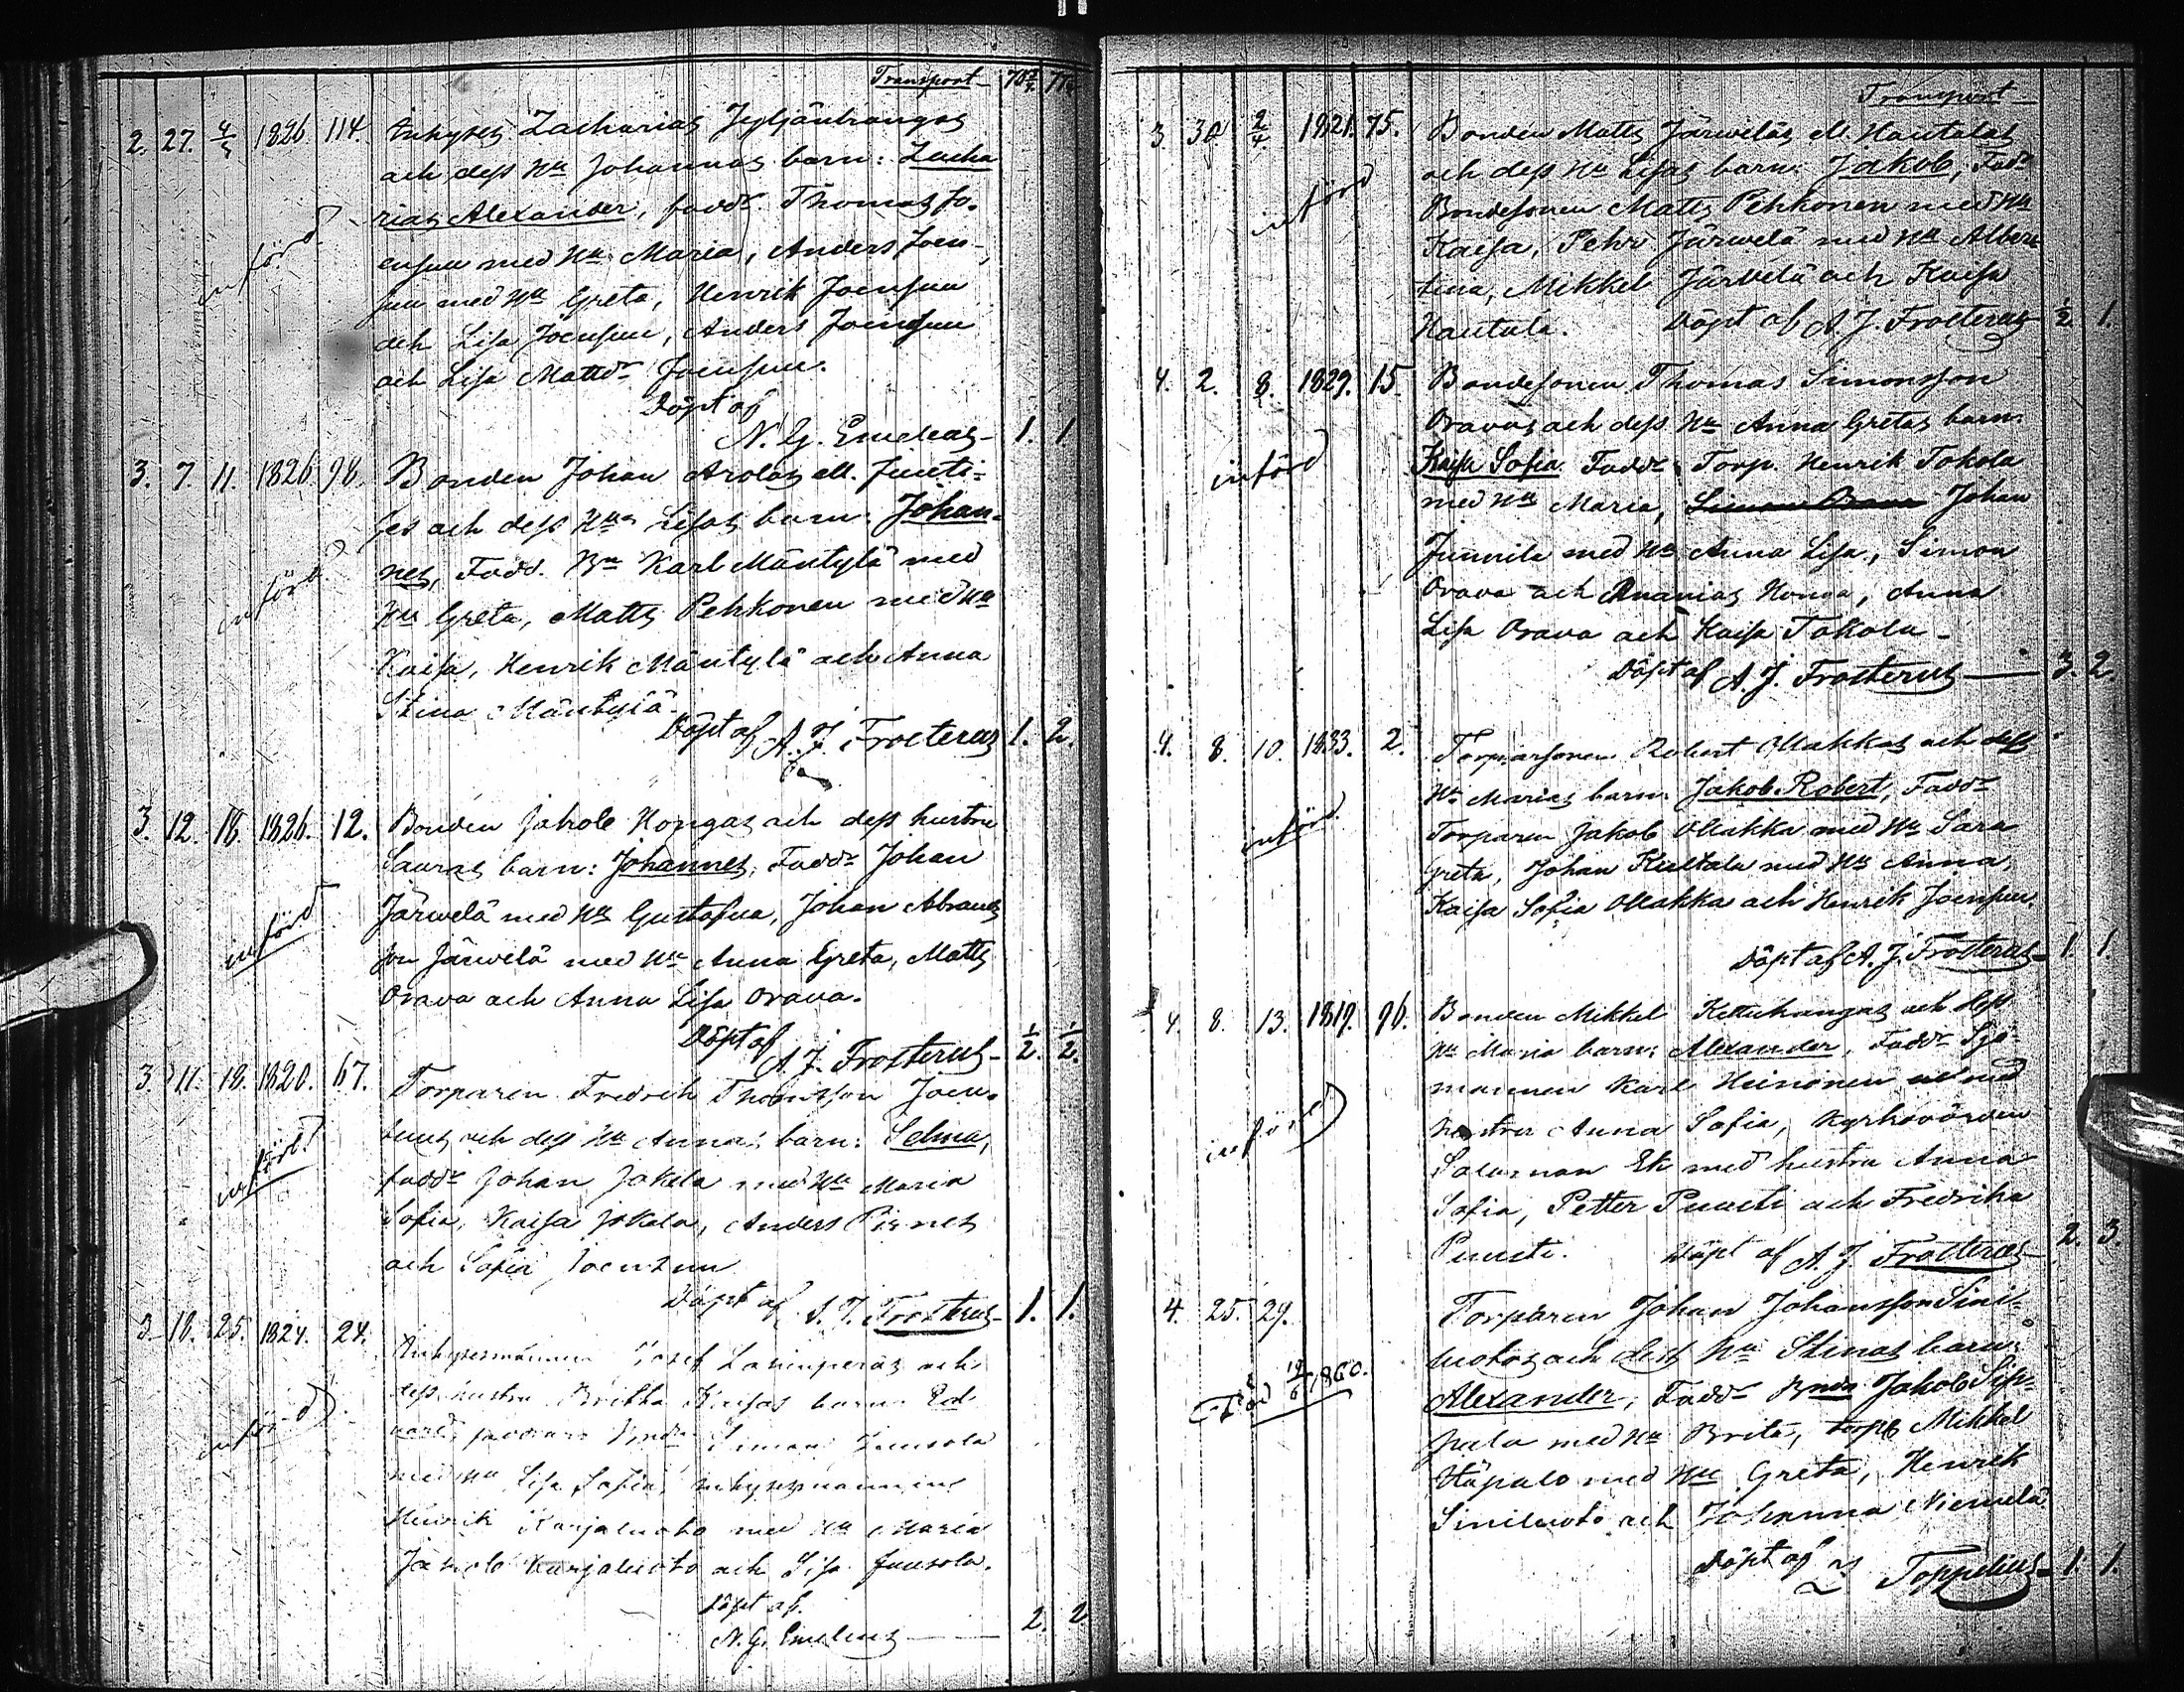 Transport
2. 27. 4/3 1826. 114. Inhyses Zacharias
och dess Hu Johannas barn: Zacha
rias Alexander, fadd. Thomas Jo-
ensuu med Hu Maria, Anders Joen-
suu med Hu Greta, Henrik Joensuu
och Lisa Joensuu, Anders Joensuu
och Lisa Mattsdr Joensuu.
införd
Döpt af
N. G. Emeleus 1. 1.
3. 7. 11. 1826. 98. Bonden Johan Arolas ell. Juuti-
ses och dess Hus Lisas barn: Johan-
nes, Fadd. Bn Karl Mäntylä med
Hu Greta, Matts Pehkonen med Hu
Kaisa, Henrik Mäntylä och Anna
Stina Mäntylä.
införd
Döpt af A. J. Frosterus 1. 2.
3. 12. 18. 1826. 12. Bonden Jakob Hongas och dess hustru
Sauras barn: Johannes, Fadd. Johan
Järwelä med Hu Gustafva, Johan Abrams
son Järwelä med Hu Anna Greta, Matts
Orava och Anna Lisa Orava.
införd
Döpt af
A. J. Frosterus ½. ½.
3. 11. 18. 1820. 67. Torparen Fredrik Thomsson Joen-
suus och dess Hu Annas barn: Selma,
fadd. Johan Jokela med Hu Maria
Sofia, Kaisa Jokela, Anders Pienes
och Sofia Joensuu
införd
Döpt af A. J. Frosterus 1. 1.
3. 18. 25. 1824. 24. Inhysesmannen Josef Lasinperäs och
dess hustru Britha Kaisas barn: Ed-
vard, faddrar Bnde Simon Juusola
med Hu Lisa Sofia, inhysesmannen
Henrik Karjaluoto med Hu Maria
Jakob Karjaluoto och Lisa Juusola.
införd
Döpt af
N. G. Emeleus 2. 2
Transport
3. 30. 2/4 1821. 75. Bonden Matts Järweläs ell. Hautalas
och dess Hu Lisas barn: Jakob, Fadd.
Bondesonen Matts Pehkonen med Hu
Kaisa, Pehr Järwelä med Hu Alber
tina, Mikkel Järvelä och Kaisa
Hautala. Döpt af A. J. Frosterus ½. 1.
införd
4. 2. 8. 1829. 15. Bondesonen Thomas Simonsson
Oravas och dess Hu Anna Gretas barn:
Kaisa Sofia. Fadd. Torp. Henrik Tokola
med Hu Maria, Simon Orava Johan
Junnila med Hu Anna Lisa, Simon
Orava och Ananias Honga, Anna
Lisa Orava och Kaisa Tokola
införd
Döpt af A. J. Frosterus 3. 2
4. 8. 10. 1833. 2. Torparsonen Robert Makkas och dess
Hu Marias barn: Jakob Robert, Fadd.
Torparen Jakob Makka med Hu Sara
Greta, Johan Kultala med Hu Anna,
Kaisa Sofia Makka och Henrik Joensuu.
införd
Döpt af A. J. Frosterus 1. 1.
4. 8. 13. 1819. 96. Bonden Mikkel Kettukangas och dess
Hu Maria barn: Alexander, Fadd. Sjö-
mannen Karl Heinonen med
hustru Anna Sofia, Kyrkovärden
Salomon Ek med hustru Anna
Sofia, Petter Puusti och Fredrika
Puusti. Döpt af A. J. Frosterus 2. 3.
införd
4. 25. 29. Torparen Johan Johansson Sini-
luotos och dess Hu Stinas barn:
Alexander, Fadd. Bnden Jakob Sip-
pala med Hu Brita, torp Mikkel
Häpalo med Hu Greta, Henrik
Siniluoto och Johanna Niemelä
Död 19/6 1860.
Döpt af Toppelius 1. 1.